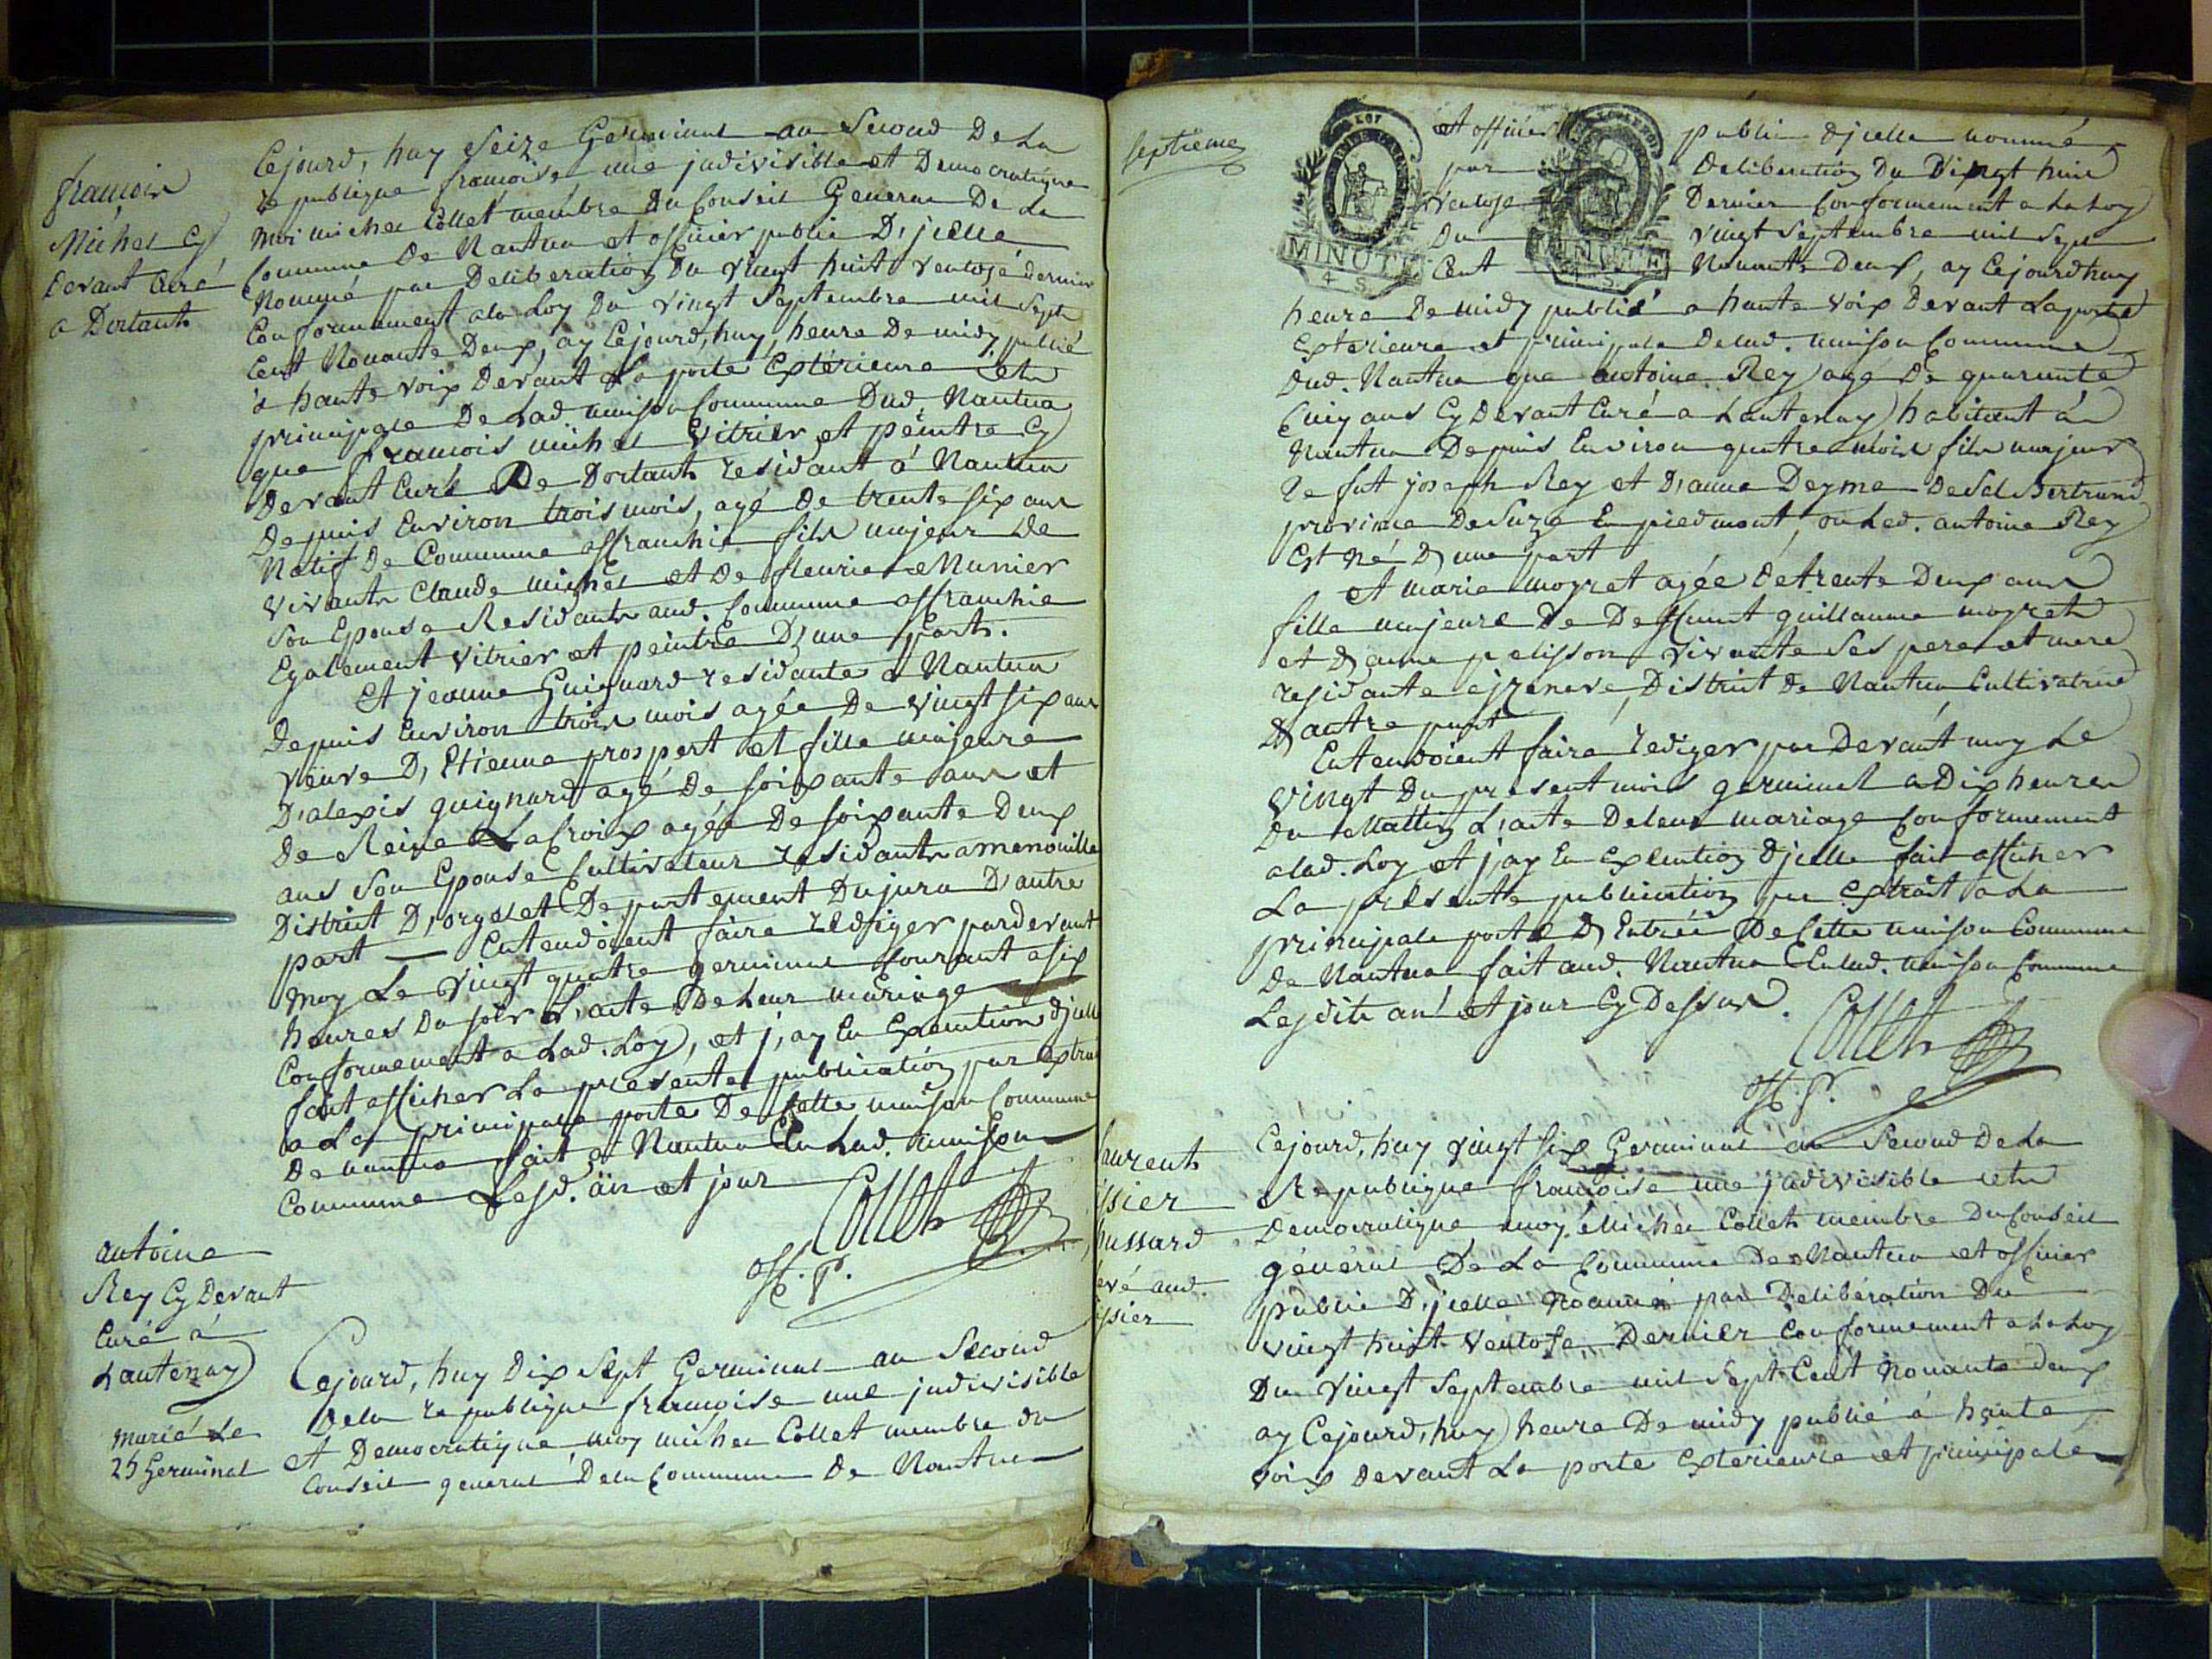 françois
Michel cy
devant curé
a Dortant
Cejourd,huy seize Germinal an second De La
republique françoise une jndivisible et Democratique
moi michel Collet membre Du Conseil General De La
Commune De Nantua et officier public D,jcelle
Nommé par Deliberation Du vingt huit ventosé dernier
Conformement ala Loy Du vingt septembre mil sept
Cent Nonante Deux, ay Cejourd,huy, heure De midy publié
a haute voix Devant La porte Extérieure et
principale De Lad maison Commune Dud Nantua
que francois michel vitrier et peintre Cy
Devant Curé De Dortant residant à Nantua
Depuis Environ trois mois, agé De trente six ans
Natif De Commune affranchie fils majeur de
vivants Claude michel et De fleurie Munier
son Epouse Residants aud. Commune affranchie
Egalement vitrier et peintre D,une part.
Et jeanne Guignard residante a Nantua
Depuis Environ trois mois agée De vingt six ans
veuve D,Etienne prospert et fille majeure
D'alexis guignard agé De soixante ans et
De Reine La Croix agée De soixante Deux
ans son Epouse Cultivateur residants amenouille
District D,orgelet Departement Dujura D'autre
part — Entendoient faire rediger pardevant
moy Le vingt quatre germinal Courant a six
heures Du soir L'acte De Leur mariage
Conformement a Lad. Loy, et j,ay En Execution djcelle
fait afficher La presente publication par extrait
a La principale porte De Cette maison Commune
De nantua fait a Nantua En Lad. maison
Commune Lesd. an et jour
Collet
off. p.
antoine
Rey Cy Devant
Curé à
Lantenay
marié Le
25 Germinal
Cejourd,huy Dix sept Germinal an second
Dela republique françoise une jndivisible
et Democratique moy michel Collet membre du
Conseil general Dela Commune De Nantua
septieme
et officier public djcelle nommé
par Deliberation Du vingt huit
ventose Dernier Conformement a La Loy
Du vingt septembre mil sept
Cent Nonante Deux, ay Cejourdhuy
MINUTE
4 S
MINUTE
heure De midy publié a haute voix Devant La porte
Exterieure et principale Delad. maison Commune
Dud. Nantua que antoine Rey agé De quarante
Cinq ans Cy Devant Curé a Lantenay habitant à
Nantua Depuis Environ quatre mois fils majeur
De fut joseph Rey et D,anne Deyme De Sal Bertrand
province De Suze En piedmont, ou Led. antoine Rey
Est Né D'une part
et marie moyret agée De trente Deux ans
fille majeure De Deffunt guillaume moyret
et D'anne pelisson vivante ses pere et mere
residante a jzenave, District De Nantua Cultivatrice
D'autre part
Entendoient faire rediger par Devant moy Le
vingt Du present mois germinal a Dix heures
Du Mattin L'acte Deleur mariage Conformement
alad. Loy et j,ay En Execution Djcelle fait afficher
La presente publication par Extrait a La
principale porte D'Entrée De Cette maison Commune
De Nantua fait aud. Nantua En Lad. maison Commune
Lesdits an et jour Cy Dessus.
Collet
off. p.
Laurent
ssier
hussard
evé aud.
ssier
Cejourd,huy vingt six Germinal an Second De La
Republique françoise une jndivisible et
Democratique moy Michel Collet membre Du Conseil
général De La Commune De Nantua et officier
public D,jcelle Nommé par Delibération Du
vingt huit ventose Dernier Conformement a La Loy
Du vingt Septembre mil Sept Cent Nonante deux
ay Cejourd,huy heure De midy publié à haute
voix Devant La porte Exterieure et principale